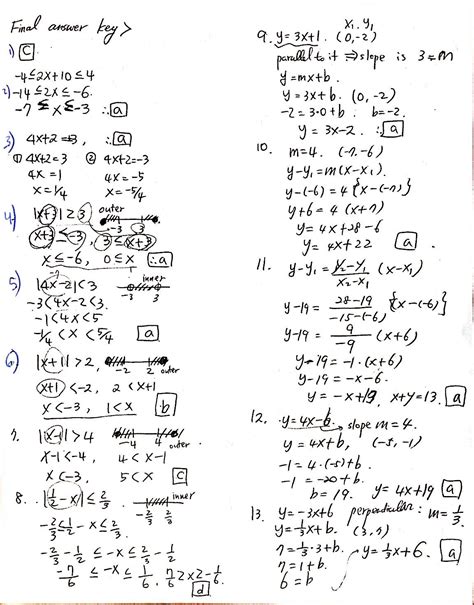 Final answer key >
1) C
-4≤2x+10≤4
2) -14≤2x≤-6.
-7 ≤ x ≤ -3 ∴ a
3) 4x+2=3, ∴ a
① 4x+2=3 ② 4x+2=-3
4x=1 4x=-5
x=1/4 x=-5/4
4) |x+3|≥3 outer
-3 3
x+3≤-3, 3≤x+3
x≤-6, 0≤x ∴ a
5) |4x-2|<3 inner
-3 3
-3<4x-2<3
-1<4x<5
-1/4<x<5/4 a
6) |x+1|>2, -2 2 outer
x+1<-2, 2<x+1
x<-3, 1<x b
7. |x-1|>4 -4 4 outer
x-1<-4, 4<x-1
x<-3, 5<x C
8. |1/2-x|≤2/3. inner
-2/3 2/3
-2/3≤1/2-x≤2/3.
-2/3-1/2≤-x≤2/3-1/2
-7/6≤-x≤1/6, 7/6≥x≥-1/6
d
x₁, y₁
9. y=3x+1. (0,-2)
parallel to it ⇒ slope is 3=m
y=mx+b.
y=3x+b. (0,-2)
-2=3·0+b. b=-2.
y=3x-2. ∴ a
10. m=4. (-7,-6)
y-y₁=m(x-x₁).
y-(-6)=4{x-(-7)}
y+6=4(x+7)
y=4x+28-6
y=4x+22 a
11. y-y₁=y₂-y₁/x₂-x₁ (x-x₁)
y-19=28-19/-15-(-6) {x-(-6)}
y-19=9/-9 (x+6)
y-19=-1·(x+6)
y-19=-x-6.
y=-x+13, x+y=13. a
12. y=4x-6 slope m=4.
y=4x+b, (-5,-1)
-1=4·(-5)+b
-1=-20+b
b=19. y=4x+19 a
13. y=-3x+6 perpendicular: m=1/3.
y=1/3x+b. (3,7)
7=1/3·3+b. y=1/3x+6. a
7=1+b.
6=b